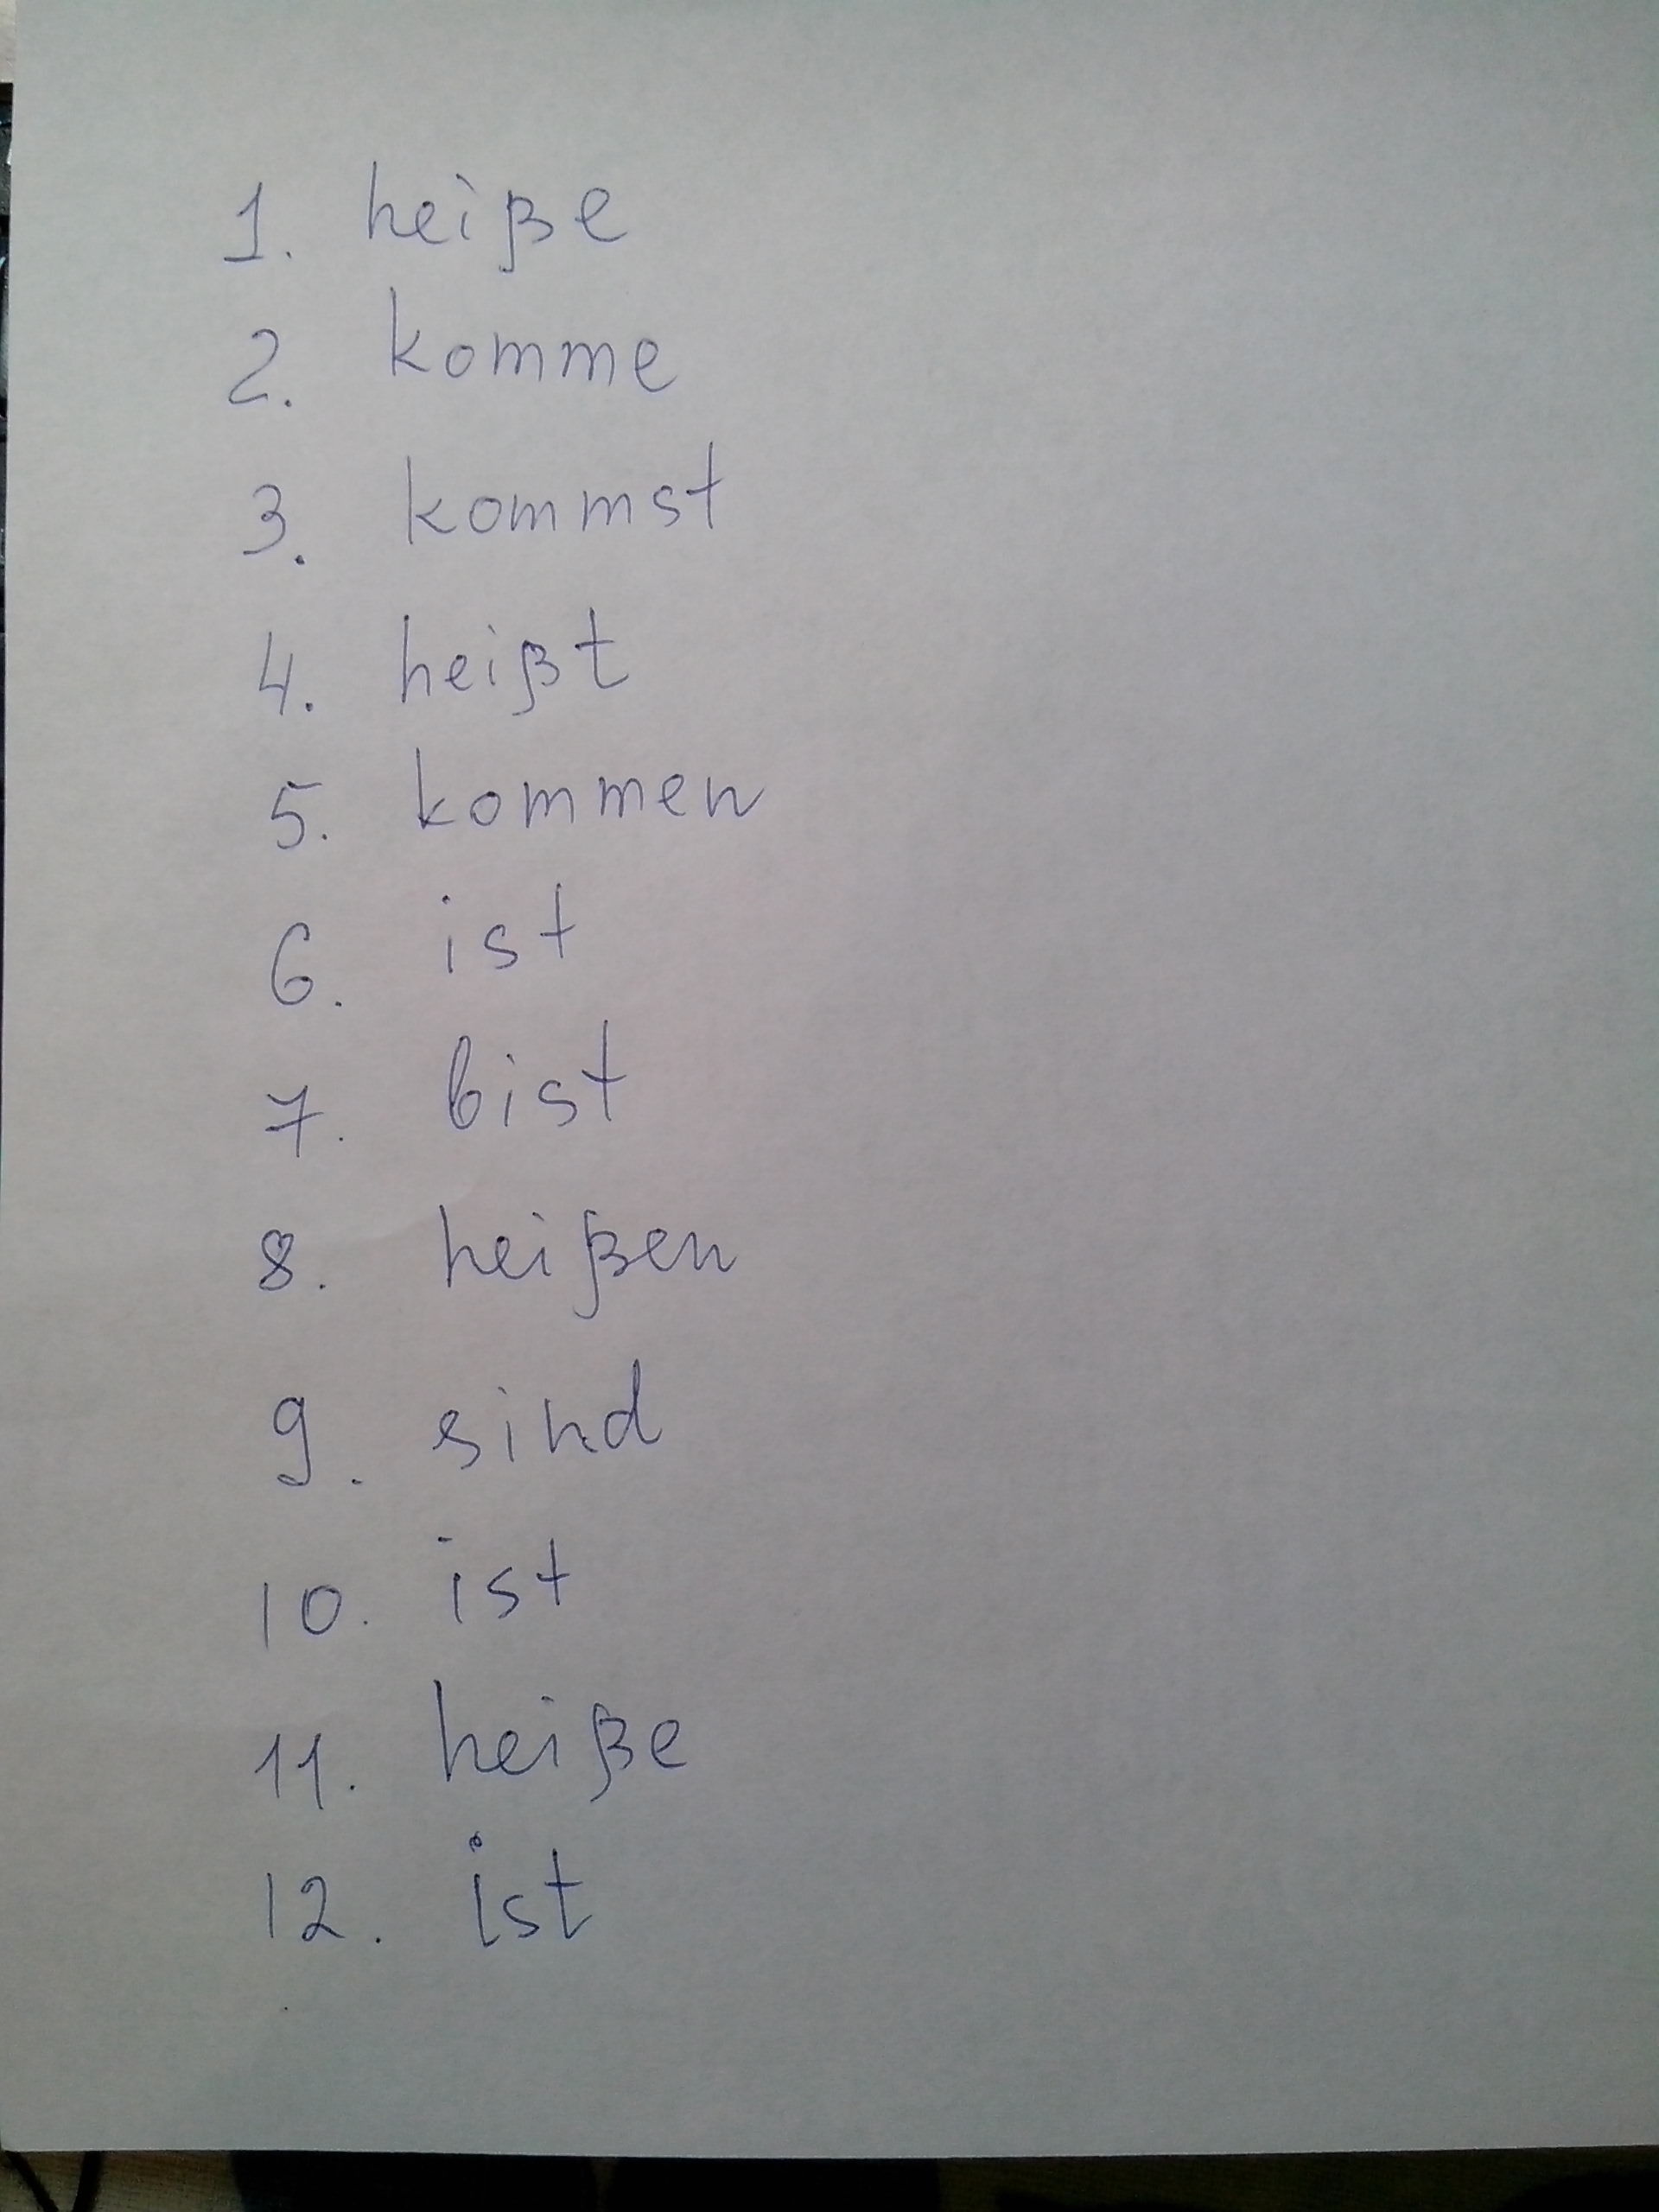 1. heiße
2. komme
3. kommst
4. heißt
5. kommen
6. ist
7. bist
8. heißen
9. sind
10. ist
11. heiße
12. ist